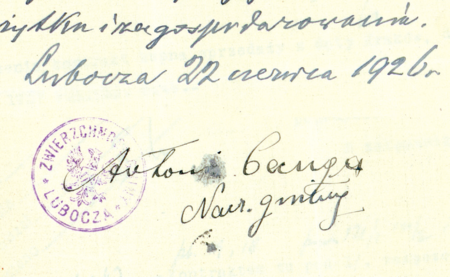 żytku i zagospodarowania.
Lubocza 22 czerwca 1926 r
ZWIERZCHNO
LUBOCZA
Antoni Canga
Nacz. gminy